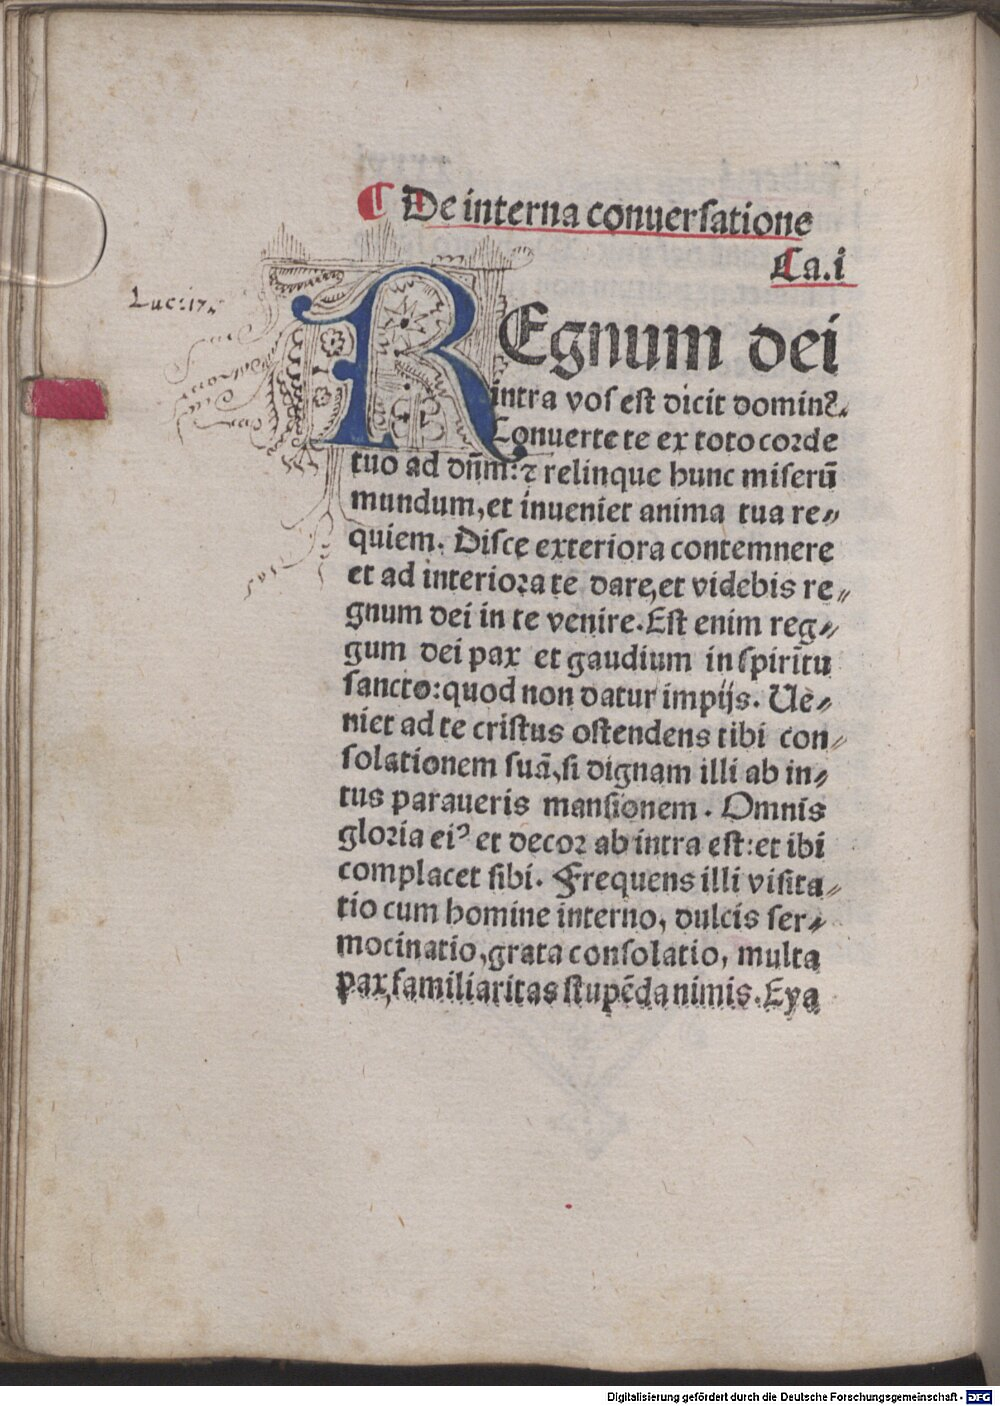 ¶ De interna conuerſatione
Ca.i
Luc: 17.
REgnum dei
intra voſ eſt dicit dominꝰ.
Conuerte te ex toto corde
tuo ad dn̄m: ⁊ relinque hunc miſerū
mundum, et inueniet anima tua re⸗
quiem. Diſce exteriora contemnere
et ad interiora te dare, et videbis re⸗
gnum dei in te venire. Eſt enim reg⸗
gum dei pax et gaudium in ſpiritu
ſancto: quod non datur impijs. Ue⸗
niet ad te criſtus oſtendens tibi con⸗
ſolationem ſuā, ſi dignam illi ab in⸗
tus paraueris manſionem. Omnis
gloria eiꝰ et decor ab intra eſt: et ibi
complacet ſibi. Frequens illi viſita⸗
tio cum homine interno, dulcis ſer⸗
mocinatio, grata conſolatio, multa
pax, familiaritas ſtupēda nimis. Eya
Digitalisierung gefördert durch die Deutsche Forschungsgemeinschaft - DFG